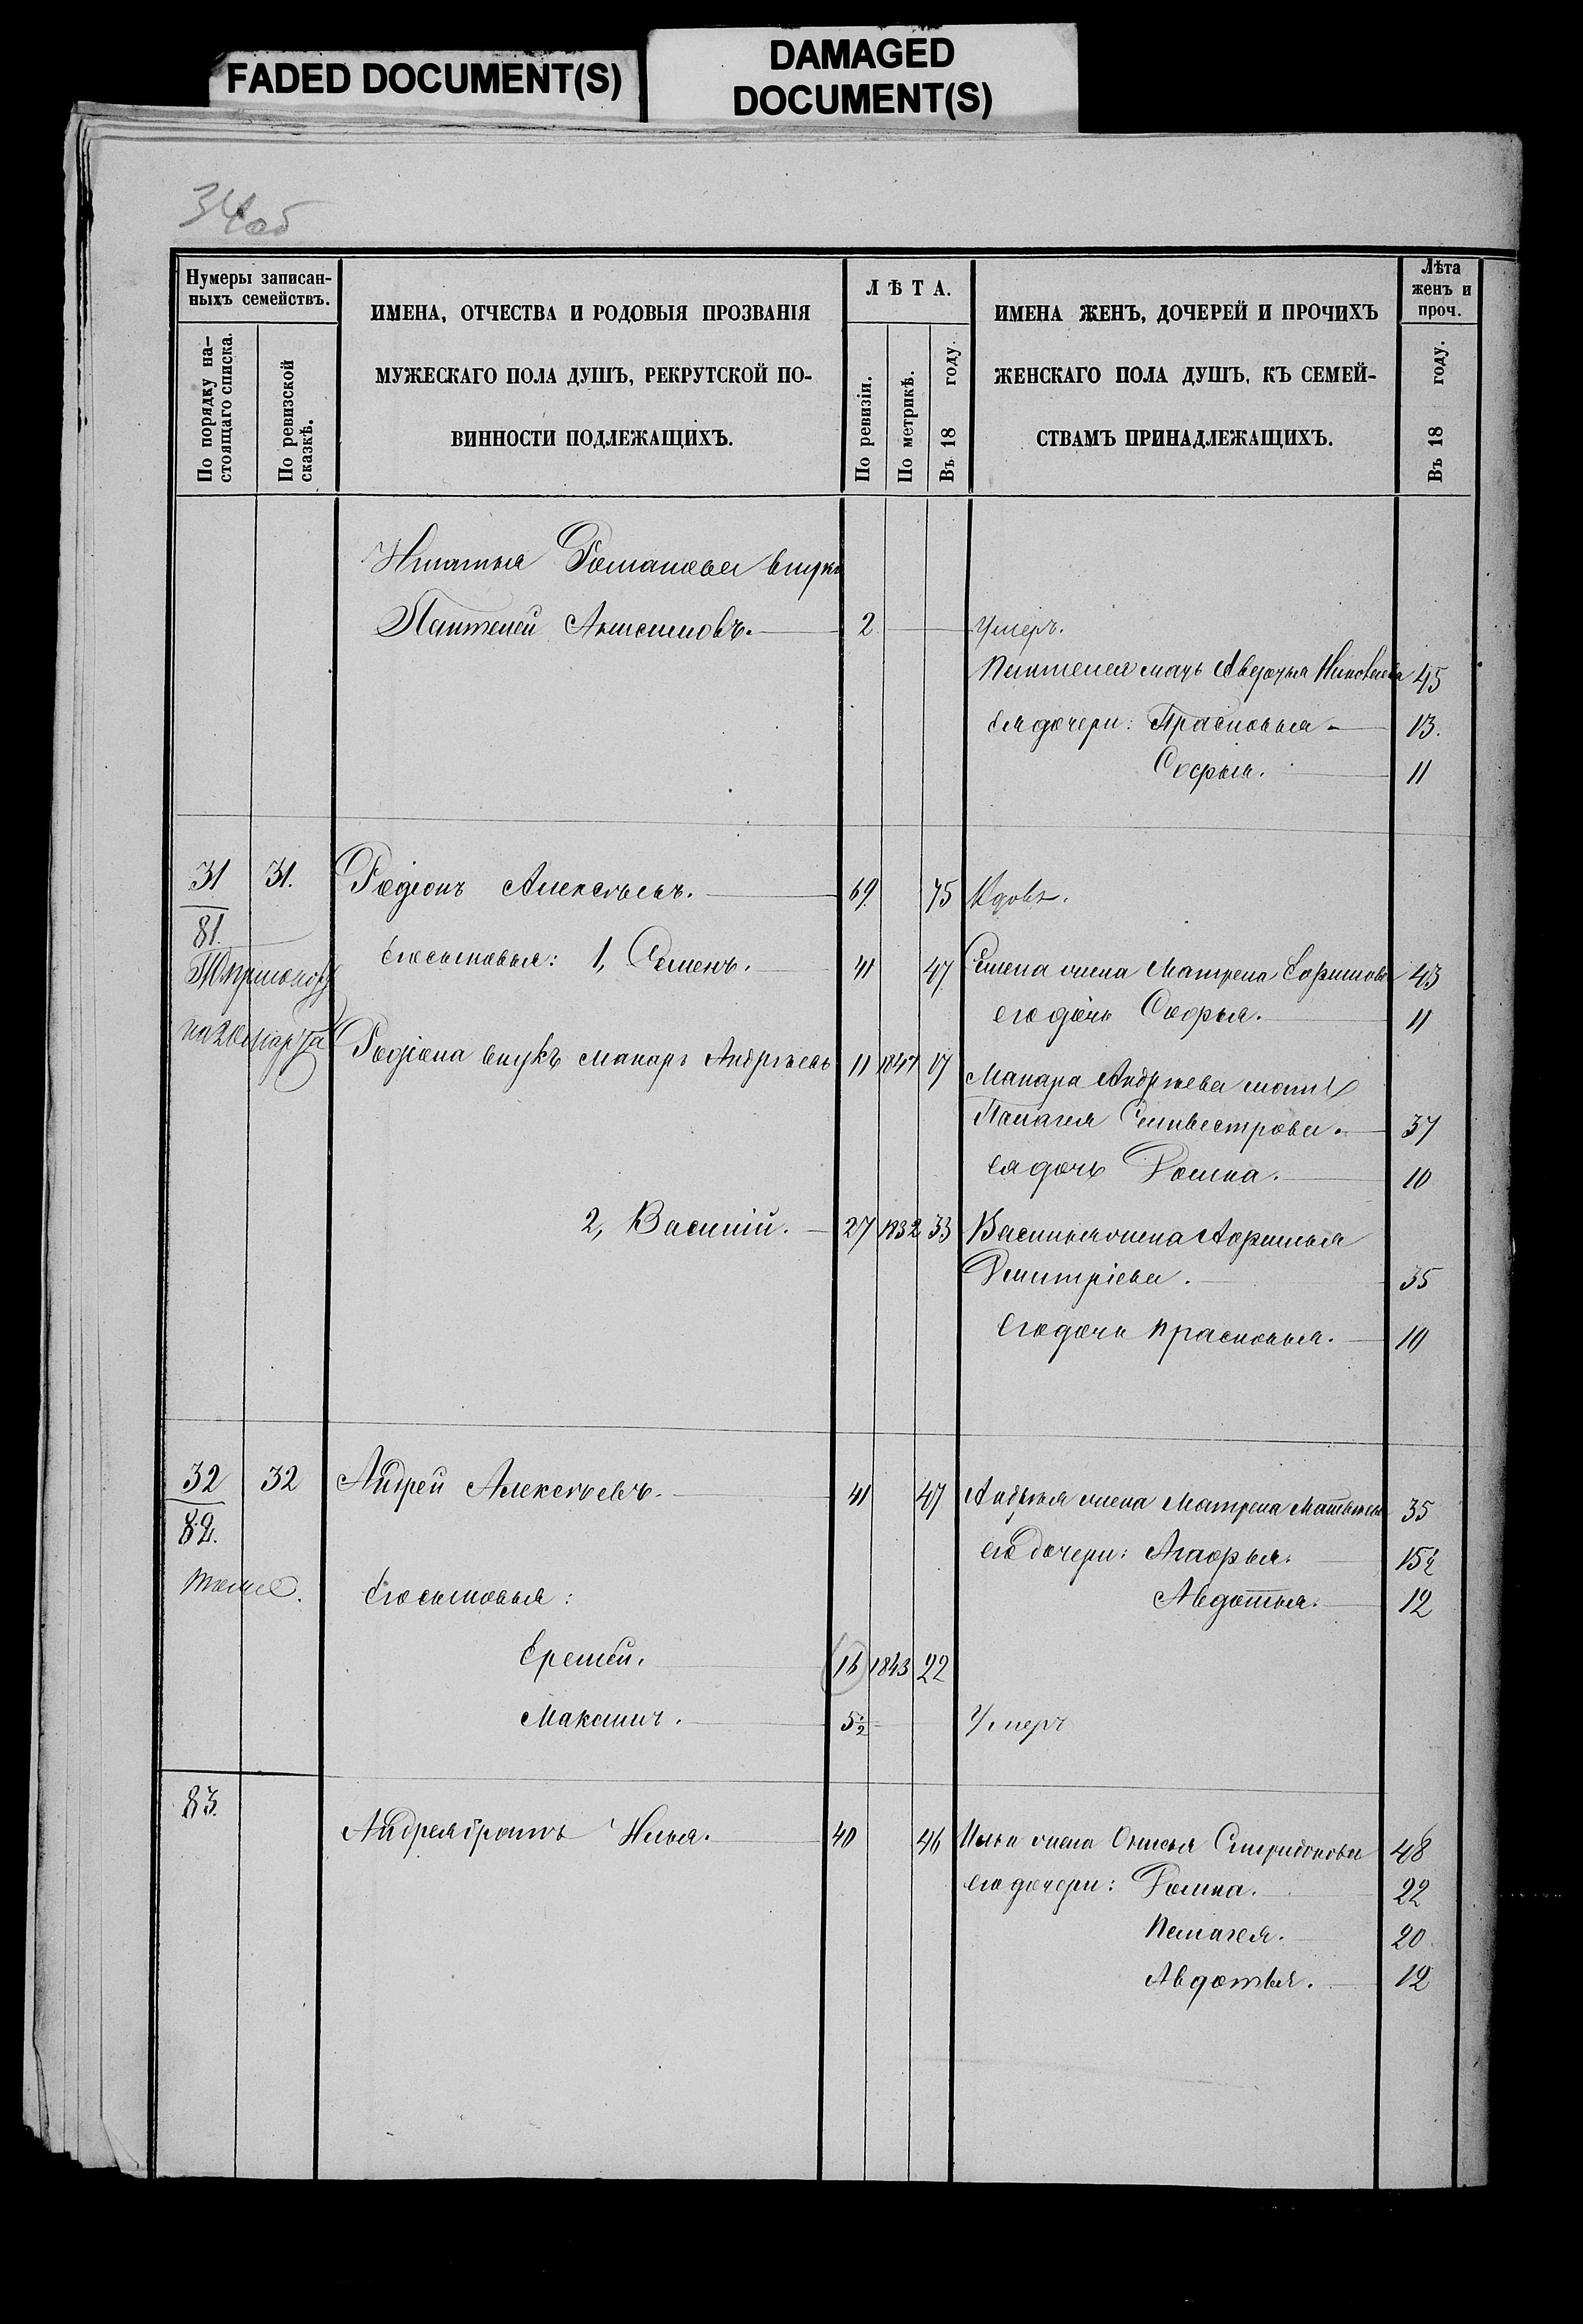 FADED DOCUMENT(S)
DAMAGED
DOCUMENT(S)
34об
Нумеры записан-
ныхъ семействъ.
По порядку на-
стоящаго списка.
По ревизской
сказкѣ.
ИМЕНА, ОТЧЕСТВА И РОДОВЫЯ ПРОЗВАНІЯ
МУЖЕСКАГО ПОЛА ДУШЪ, РЕКРУТСКОЙ ПО-
ВИННОСТИ ПОДЛЕЖАЩИХЪ.
ЛѢТА.
По ревизіи.
По метрикѣ.
Въ 18 году.
ИМЕНА ЖЕНЪ, ДОЧЕРЕЙ И ПРОЧИХЪ
ЖЕНСКАГО ПОЛА ДУШЪ, КЪ СЕМЕЙ-
СТВАМЪ ПРИНАДЛЕЖАЩИХЪ.
Лѣта
женъ и
проч.
Въ 18 году.
Игнатья Романова внукъ
Пантелей 2 Умеръ.
Пантелея мать Авдотья 45
Ея дочери: Прасковья 13.
Софья. 11
31 31. Родіонъ Алексѣевъ. 69 75 Вдовъ.
81.
Его сыновья: 1, Семенъ. 41 47 Семена жена Матрена 43
его дочь Софья. 11
на 20 марта
Родіона внукъ Макаръ Андрѣевъ 11 1847 17 Макара Андрѣева мать
Палагея Селивестрова. 37
ея дочь Домна. 10
2, Василій. 27 1832 33 Василья жена
Дмитріева. 35
Его дочь Прасковья. 10
32 32 Андрей Алексѣевъ. 41 47 Андрѣя жена Матрена 35
82.
его дочери: Агафья. 15½
тоже. Его сыновья: Авдотья. 12
Еремѣй. 16 1843 22
Максимъ. 5½ Умеръ
83. Андрея братъ Илья. 40 46 Ильи жена Спиридонова 48
его дочери: Домна. 22
Пелагея. 20
Авдотья. 12